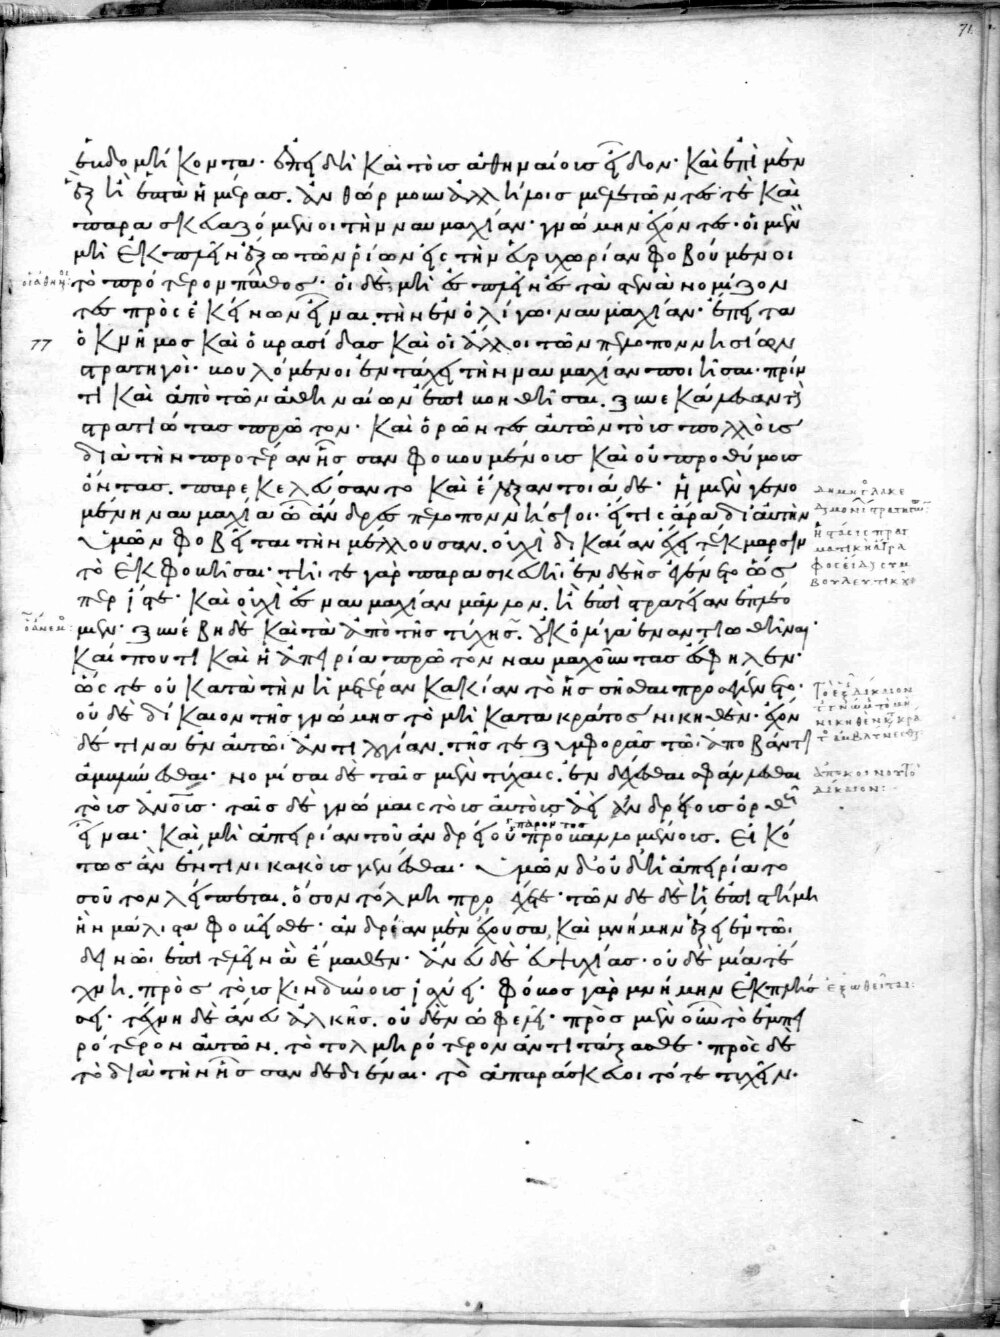 ἑβδομήκοντα· ἐπειδὴ καὶ τοὺς ἀθηναίους εἶδον· καὶ ἐπὶ μὲν
ἓξ ἢ ἑπτὰ ἡμέρας. ἀνθώρμουν ἀλλήλοις μελετῶντες τὲ καὶ
παρασκευαζόμενοι τὴν ναυμαχίαν· γνώμην ἔχοντες· οἱ μὲν
μὴ ἐκπλεῖν ἔξω τῶν ῥίων ἐς τὴν εὐρυχωρίαν φοβούμενοι
οἱ ἀθην: τὸ πρότερον πάθος· οἱ δὲ, μὴ ἐσπλεῖν ἐς τὰ στενὰ νομίζον
τες πρὸς ἐκείνων εἶναι. τὴν ἐν ὀλίγωι ναυμαχίαν· ἔπειτα
77 ὁ κνῆμος καὶ ὁ βρασίδας καὶ οἱ ἄλλοι τῶν πελοποννησίων
στρατηγοὶ· βουλόμενοι ἐν τάχει τὴν ναυμαχίαν ποιῆσαι· πρίν
τι καὶ ἀπὸ τῶν ἀθηναίων ἐπιβοηθῆσαι. ξυνεκάλεσαν τοὺς
στρατιώτας πρῶτον· καὶ ὁρῶντες αὐτῶν τοὺς πολλοὺς
διὰ τὴν προτέραν ἧσσαν φοβουμένους καὶ οὐ προθύμους
ὄντας. παρεκελεύσαντο καὶ ἔλεξαν τοιάδε· ἡ μὲν γενο
μένη ναυμαχία ὦ ἄνδρες πελοποννήσιοι· εἴ τις ἄρα δι' αὐτὴν
ὑμῶν φοβεῖται τὴν μέλλουσαν. οὐχὶ δικαίαν ἔχει τέκμαρσιν
τὸ ἐκφοβῆσαι· τῆι τε γὰρ παρασκευῆι· ἐνδεὴς ἐγένετο ὥσ
περ ἴστε· καὶ οὐχὶ ἐς ναυμαχίαν μᾶλλον. ἢ ἐπὶ στρατείαν ἐπλέο
μεν· ξυνέβη δὲ καὶ τὰ ἀπὸ τῆς τύχης. οὐκ ὀλίγα ἐναντιωθῆναι·
καί πού τι καὶ ἡ ἀπειρία πρῶτον ναυμαχοῦντας ἔσφηλεν·
ὥς τε οὐ κατὰ τὴν ἡμετέραν κακίαν τὸ ἡσσῆσθαι προσεγένετο·
οὐδὲ δίκαιον τῆς γνώμης τὸ μὴ κατακράτος νικηθὲν· ἔχον
δέ τινα ἐν αὐτῶι· ἀντιλογίαν. τῆς τε ξυμφορᾶς τῶι· ἀποβάντι
ἀμβλύνεσθαι· νομίσαι δὲ ταῖς μὲν τύχαις. ἐνδέχεσθαι σφάλλεσθαι
τοὺς ἀνους· ταῖς δὲ γνώμαις τοὺς αὐτοὺς ἀεὶ ἀνδρείους ὀρθῶς
εἶναι· καὶ μὴ ἀπειρίαν τοῦ ἀνδρείου προβαλλομένους. εἰκό
τως ἂν ἔν τινι κακοὺς γενέσθαι· ὑμῶν δ' οὐδ' ἡ ἀπειρία το
σοῦτον λείπεται. ὅσον τόλμηι προέχετε· τῶν δὲ δὲ ἡ ἐπιστήμη
ἣν μάλιστα φοβεῖσθε· ἀνδρείαν μὲν ἔχουσα, καὶ μνήμην ἕξει ἐν τῶι·
δεινῶι· ἐπιτελεῖν ἃ ἔμαθεν· ἄνευ δὲ εὐψυχίας· οὐδὲ μία τέ
χνη. πρὸς τοὺς κινδύνους ἰσχύει· φόβος γὰρ μνήμην ἐκπλήσ
σει· τέχνη δὲ ἄνευ ἀλκῆς. οὐδὲν ὠφελεῖ· πρὸς μὲν οὖν τὸ ἐμπει
ρότερον αὐτῶν. τὸ τολμηρότερον ἀντιτάξασθε· πρὸς δὲ
τὸ διὰ τὴν ἧσσαν δεδιέναι· τὸ ἀπαράσκευοι τότε τυχεῖν·